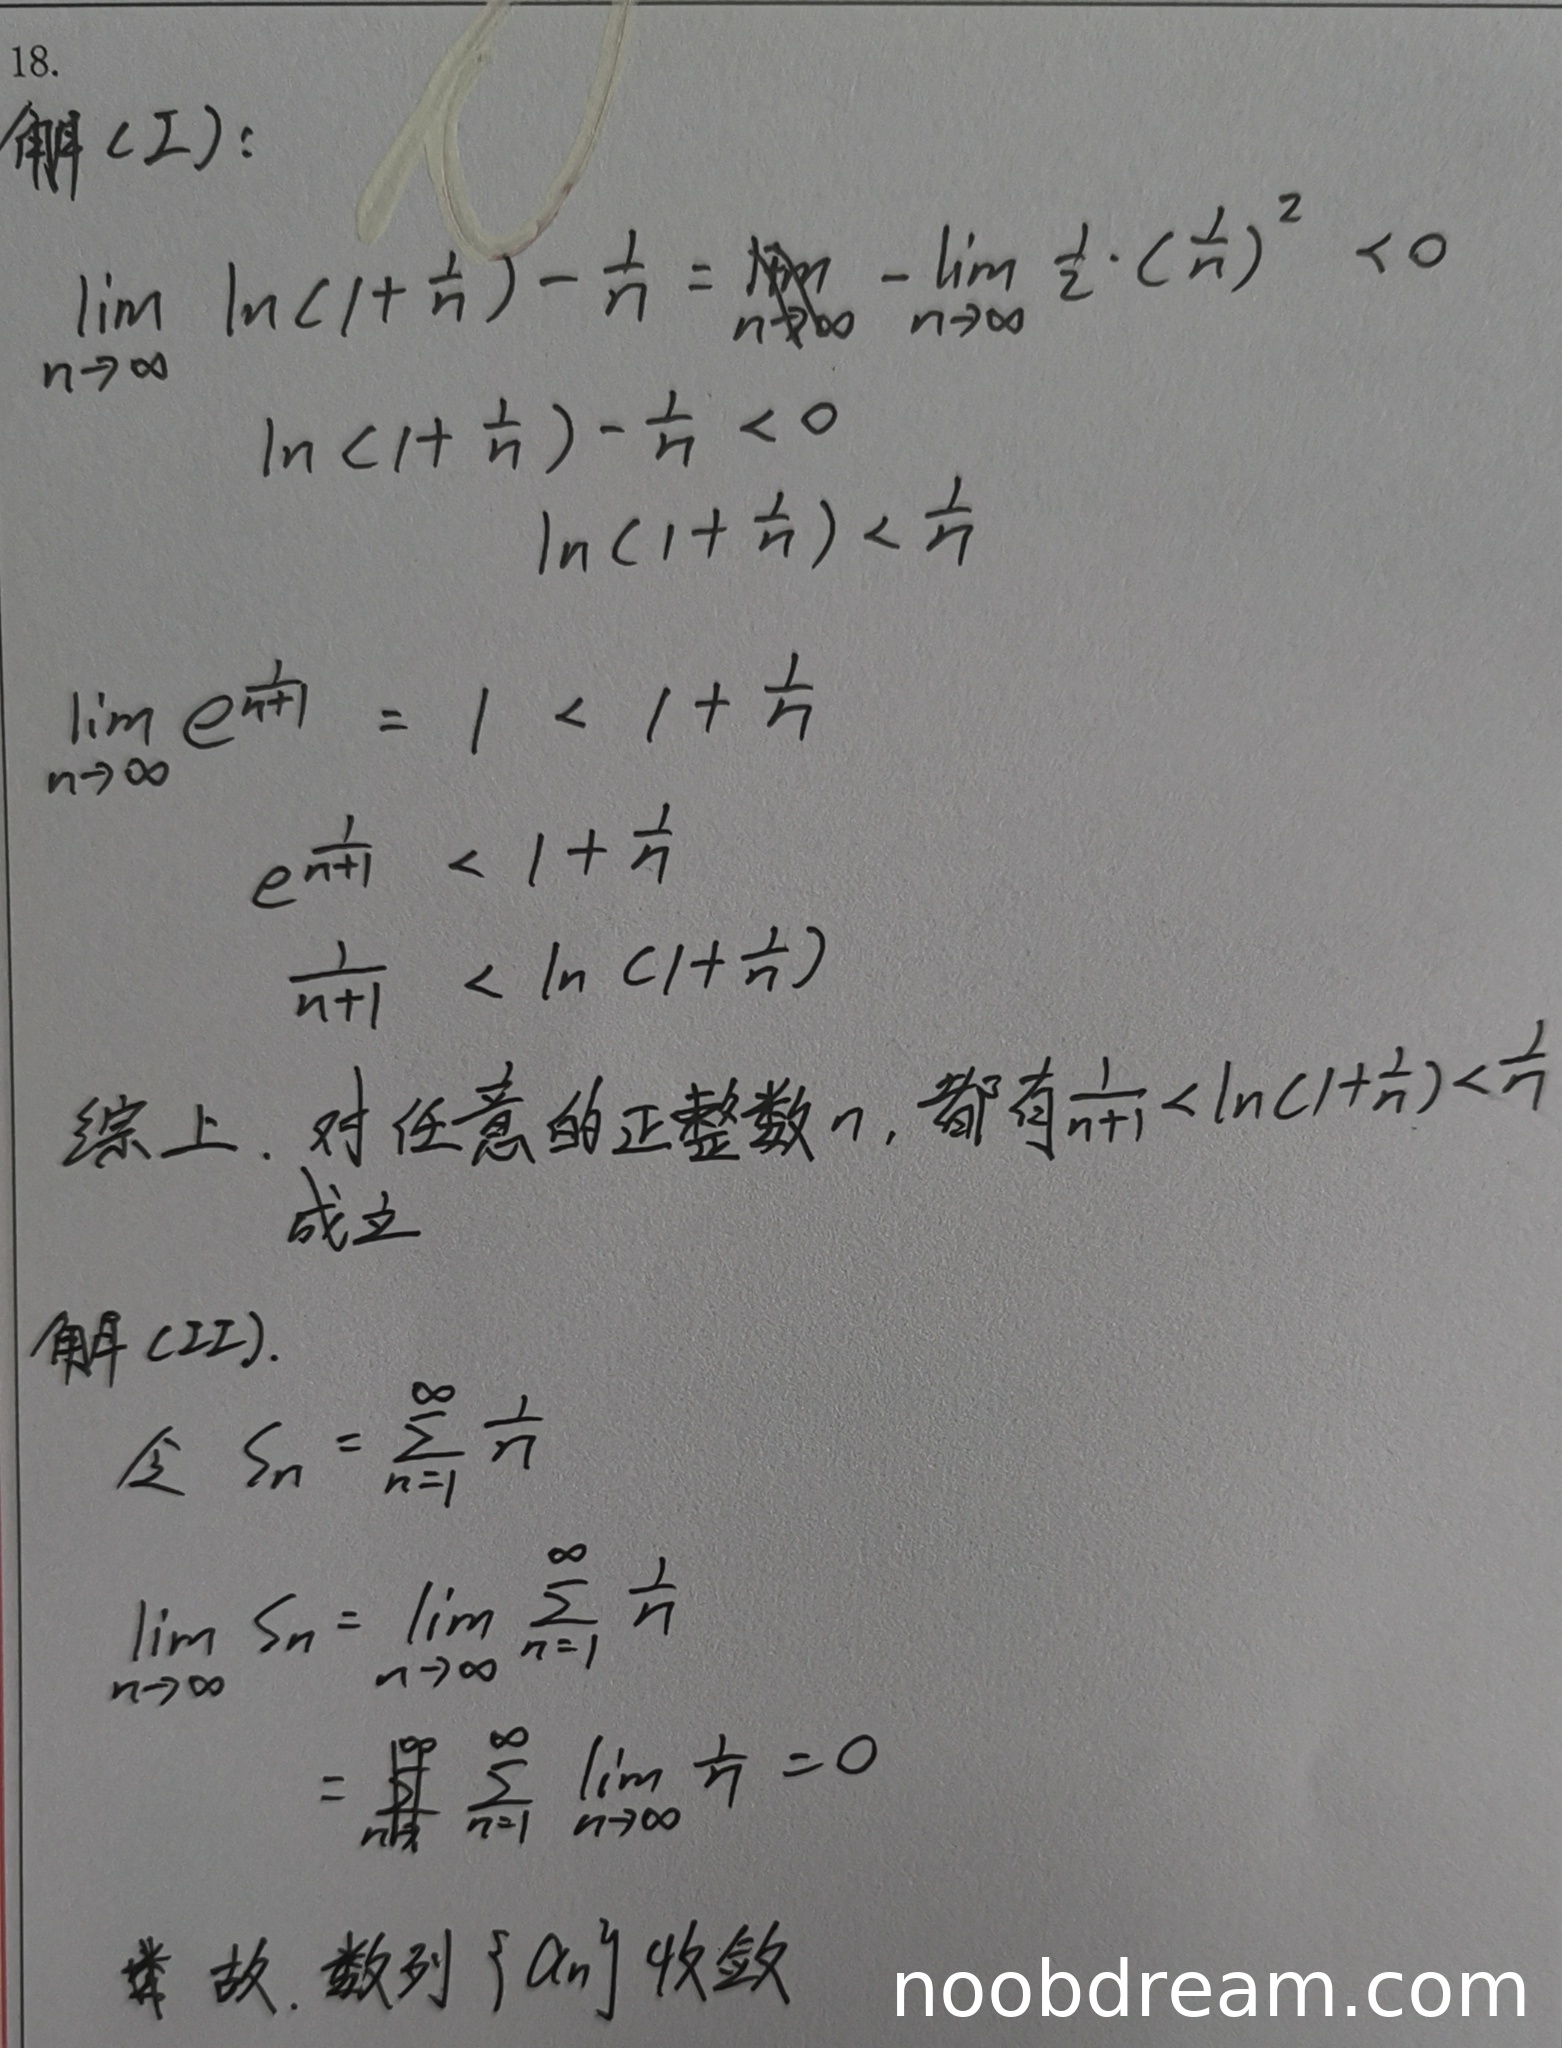 18.
解(I):
lim n→∞ ln(1+1/n) - 1/n = - lim n→∞ 1/2·(1/n)² < 0
ln(1+1/n) - 1/n < 0
ln(1+1/n) < 1/n
lim n→∞ e^(1/(n+1)) = 1 < 1+1/n
e^(1/(n+1)) < 1+1/n
1/(n+1) < ln(1+1/n)
综上.对任意的正整数n,都有1/(n+1)<ln(1+1/n)<1/n
成立
解(II).
令 Sn = ∑_{n=1}^{∞} 1/n
lim n→∞ Sn = lim n→∞ ∑_{n=1}^{∞} 1/n
= ∑_{n=1}^{∞} lim n→∞ 1/n = 0
故.数列{an}收敛
noobdream.com